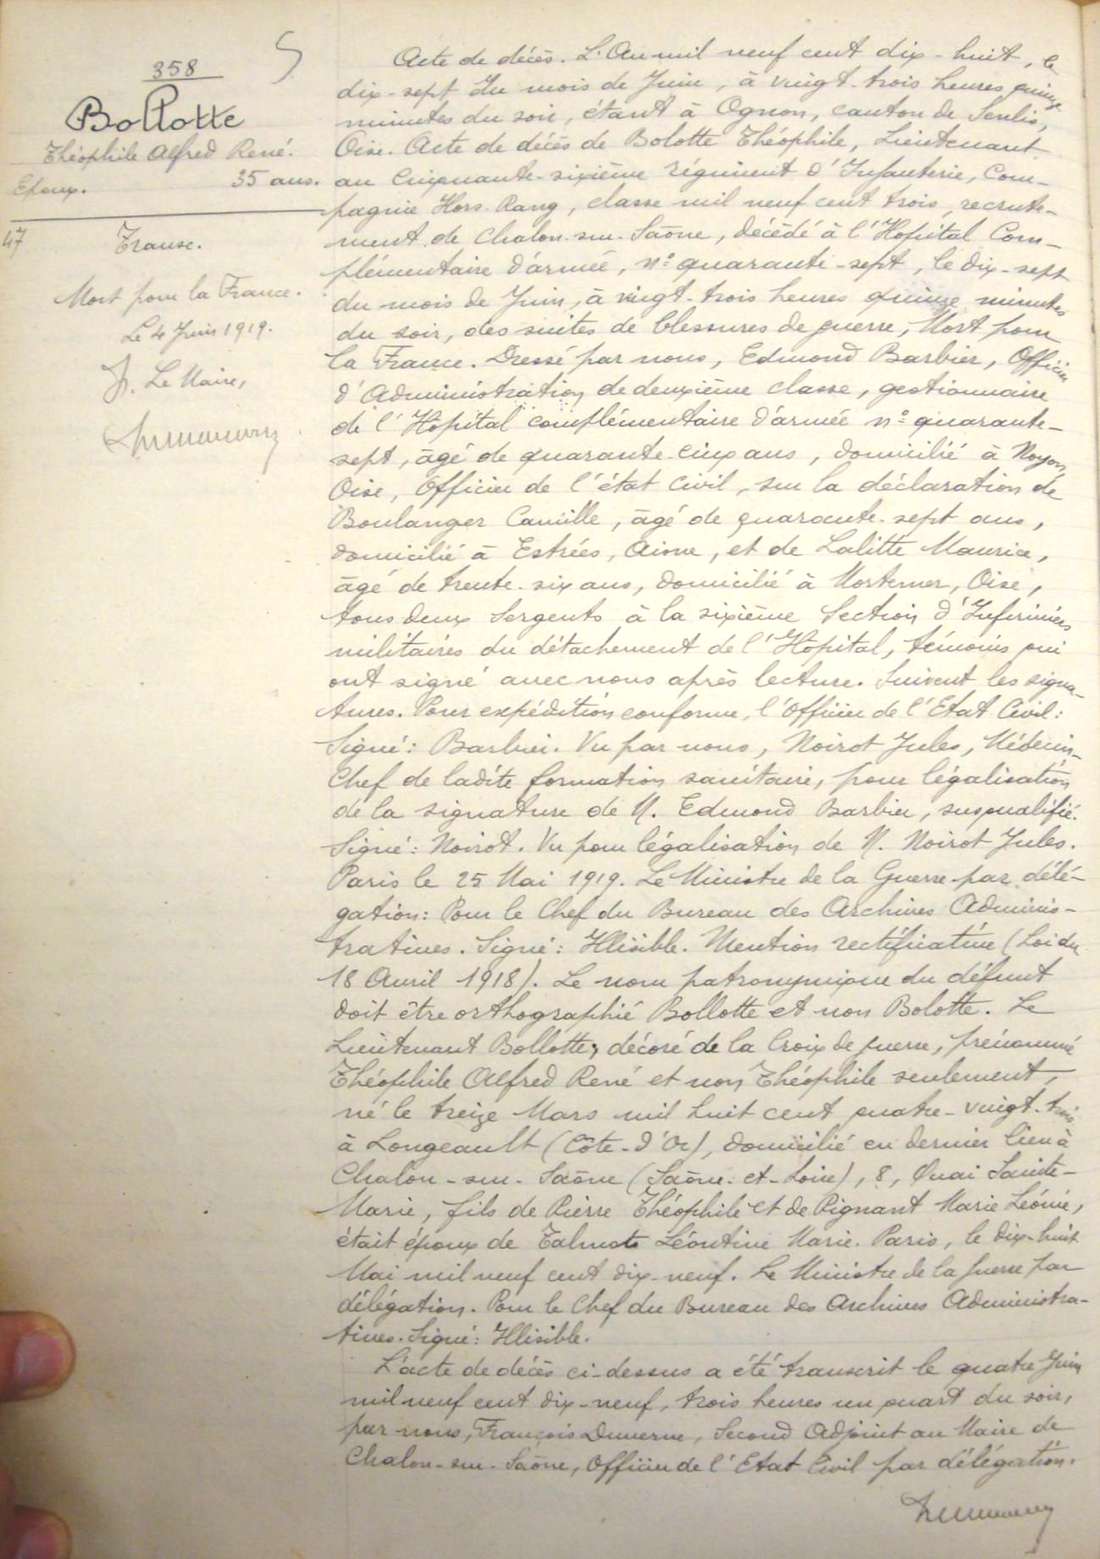 358
5
Bollotte
Théophile Alfred René.
Epoux. 35 ans.
47 Transc.
Mort pour la France.
Le 4 Juin 1919.
P. Le Maire,
Acte de décès. L'An mil neuf cent dix-huit, le
dix-sept du mois de Juin, à vingt-trois heures quinze
minutes du soir, étant à Ognon, canton de Senlis,
Oise. Acte de décès de Bolotte Théophile, Lieutenant
au cinquante-sixième régiment d'Infanterie, Com-
pagnie Hors Rang, classe mil neuf cent trois, recrute-
ment de Chalon-sur-Saône, décédé à l'Hopital Com-
plémentaire d'armée, n° quarante-sept, le dix-sept
du mois de Juin, à vingt-trois heures quinze minutes
du soir, des suites de blessures de guerre, Mort pour
la France. Dressé par nous, Edmond Barbier, Officier
d'Administration de deuxième classe, gestionnaire
de l'Hôpital complémentaire d'armée n° quarante-
sept, âgé de quarante-cinq ans, domicilié à Noyon,
Oise, Officier de l'état civil, sur la déclaration de
Boulanger Camille, âgé de quarante-sept ans,
domicilié à Estrées, Aisne, et de Lalitte Maurice,
âgé de trente-six ans, domicilié à Mortemer, Oise,
tous deux Sergents à la sixième Section d'Infirmiers
militaires du détachement de l'Hôpital, témoins qui
ont signé avec nous après lecture. Suivent les signa-
tures. Pour expédition conforme, l'Officier de l'Etat Civil:
Signé: Barbier. Vu par nous, Noirot Jules, Médecin-
Chef de ladite formation sanitaire, pour légalisation
de la signature de M. Edmond Barbier, susqualifié.
Signé: Noirot. Vu pour légalisation de M. Noirot Jules.
Paris le 25 Mai 1919. Le Ministre de la Guerre par délé-
gation: Pour le Chef du Bureau des Archives Adminis-
tratives. Signé: Illisible. Mention rectificative (Loi du
18 Avril 1918). Le nom patronymique du défunt
doit être orthographié Bollotte et non Bolotte. Le
Lieutenant Bollotte, décoré de la Croix de guerre, prénommé
Théophile Alfred René et non Théophile seulement,
né le treize Mars mil huit cent quatre-vingt-trois
à Longeault (Côte-d'Or), domicilié en dernier lieu à
Chalon-sur-Saône (Saône-et-Loire), 8, Quai Sainte-
Marie, fils de Pierre Théophile et de Pignant Marie Léonie,
était époux de Léontine Marie. Paris, le dix-huit
Mai mil neuf cent dix-neuf. Le Ministre de la guerre par
délégation. Pour le Chef du Bureau des Archives Administra-
tives. Signé: Illisible.
L'acte de décès ci-dessus a été transcrit le quatre Juin
mil neuf cent dix-neuf, trois heures un quart du soir,
par nous, François Duverne, Second Adjoint au Maire de
Chalon-sur-Saône, Officier de l'Etat Civil par délégation.